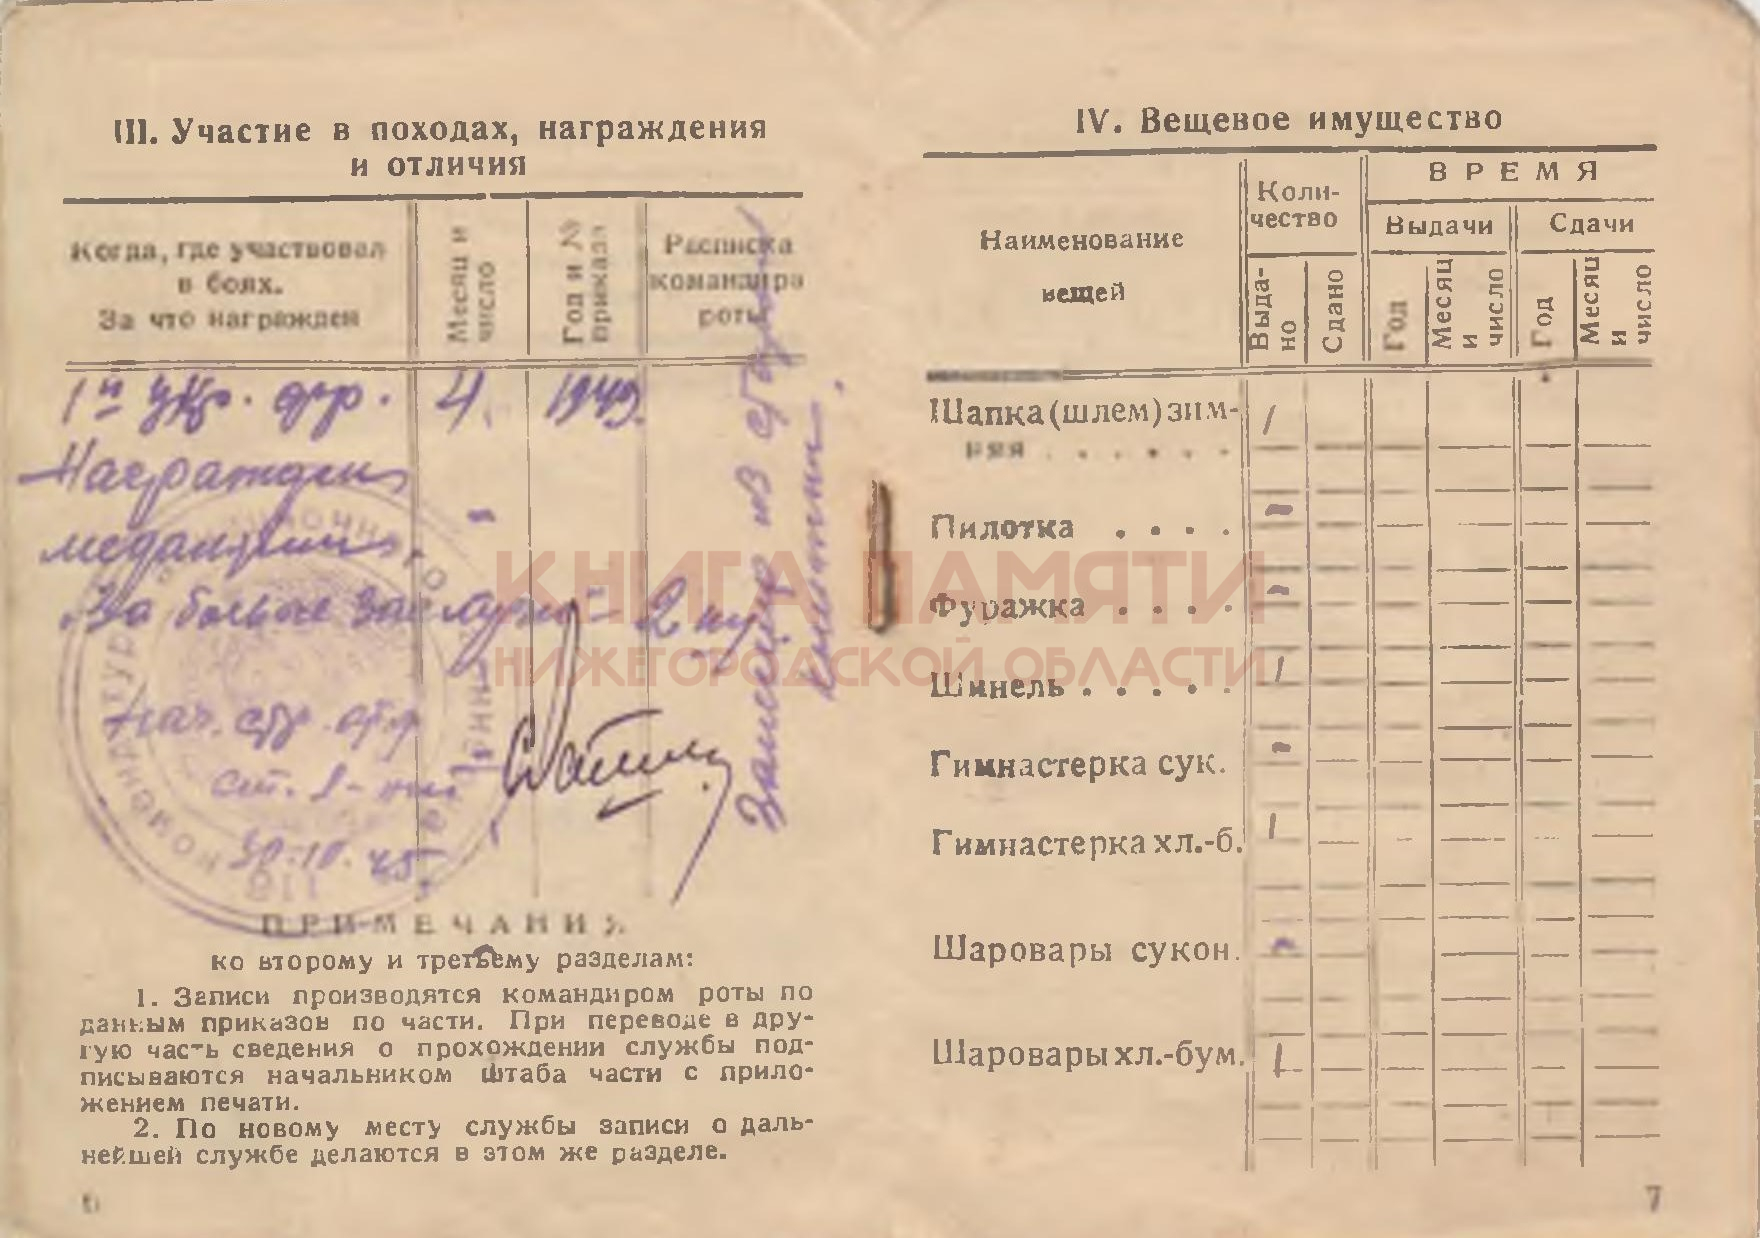 III. Участие в походах, награждения
и отличия
Когда, где участвовал
в боях.
За что награжден
Месяц и
число
Год и №
приказа
Расписка
командира
роты
1й укр. фр.
4.
1943.
Награжден
медалью
"За боевые заслуги" - 2 шт.
Нач.
ст. л-нт
30.10.45
ПРИМЕЧАНИЯ
ко второму и третьему разделам:
1. Записи производятся командиром роты по
данным приказов по части. При переводе в дру-
гую часть сведения о прохождении службы под-
писываются начальником штаба части с прило-
жением печати.
2. По новому месту службы записи о даль-
нейшей службе делаются в этом же разделе.
6
IV. Вещевое имущество
Наименование
вещей
Коли-
чество
Выда-
но
Сдано
ВРЕМЯ
Выдачи
Сдачи
Год
Месяц
и
число
Год
Месяц
и
число
Шапка (шлем) зим- 1
няя . . . . . .
Пилотка . . . . -
Фуражка . . . . -
Шинель . . . . . 1
Гимнастерка сук. -
Гимнастерка хл.-б. 1
Шаровары сукон. -
Шаровары хл.-бум. 1
7
КНИГА ПАМЯТИ
НИЖЕГОРОДСКОЙ ОБЛАСТИ